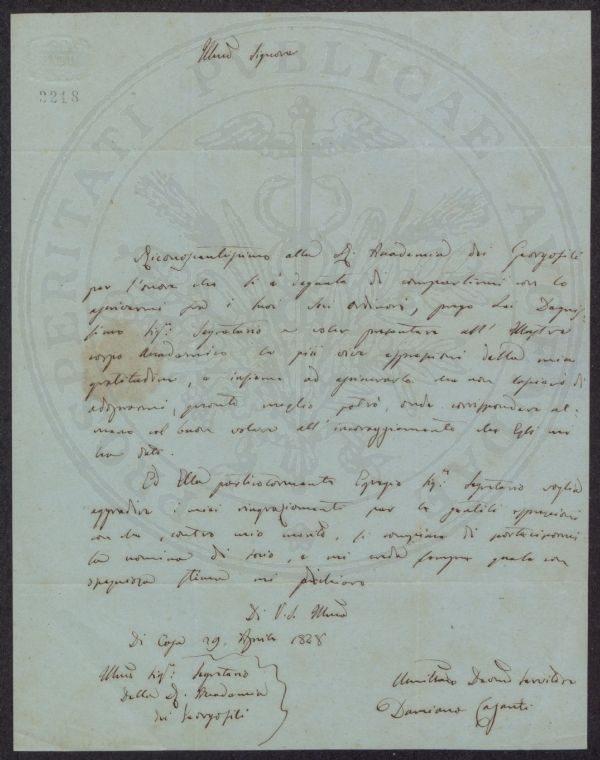 2218
Illmo Signore
Riconoscentissimo alla R. Accademia dei Georgofili
per l'onore che si è degnata di compartirmi con lo
ascrivermi fra i suoi Soci ordinarj, prego Lei Degnis-
simo Sigr. Segretario a voler presentare all'Illustre
corpo Accademico le più vive espressioni della mia
gratitudine, e insieme ad assicurarlo che non lascerò di
adoprarmi, quanto meglio potrò, onde corrispondere al-
meno col buon volere all'incoraggiamento che Egli mi
ha dato.
Ed Ella particolarmente Egregio Sigr. Segretario voglia
aggradire i miei ringraziamenti per le gentili espressioni
con che, contro mio merito, si compiacque di parteciparmi
la nomina di socio, e mi creda sempre quale con
stima mi dichiaro
Di V.S. Illma
Di Casa 29. Aprile 1848
Illmo Sigr. Segretario
Della R. Accademia
dei Georgofili
Umilissmo Devmo Servitore
Damiano Casanti
PROSPERITATI PUBLICAE AUGENDAE